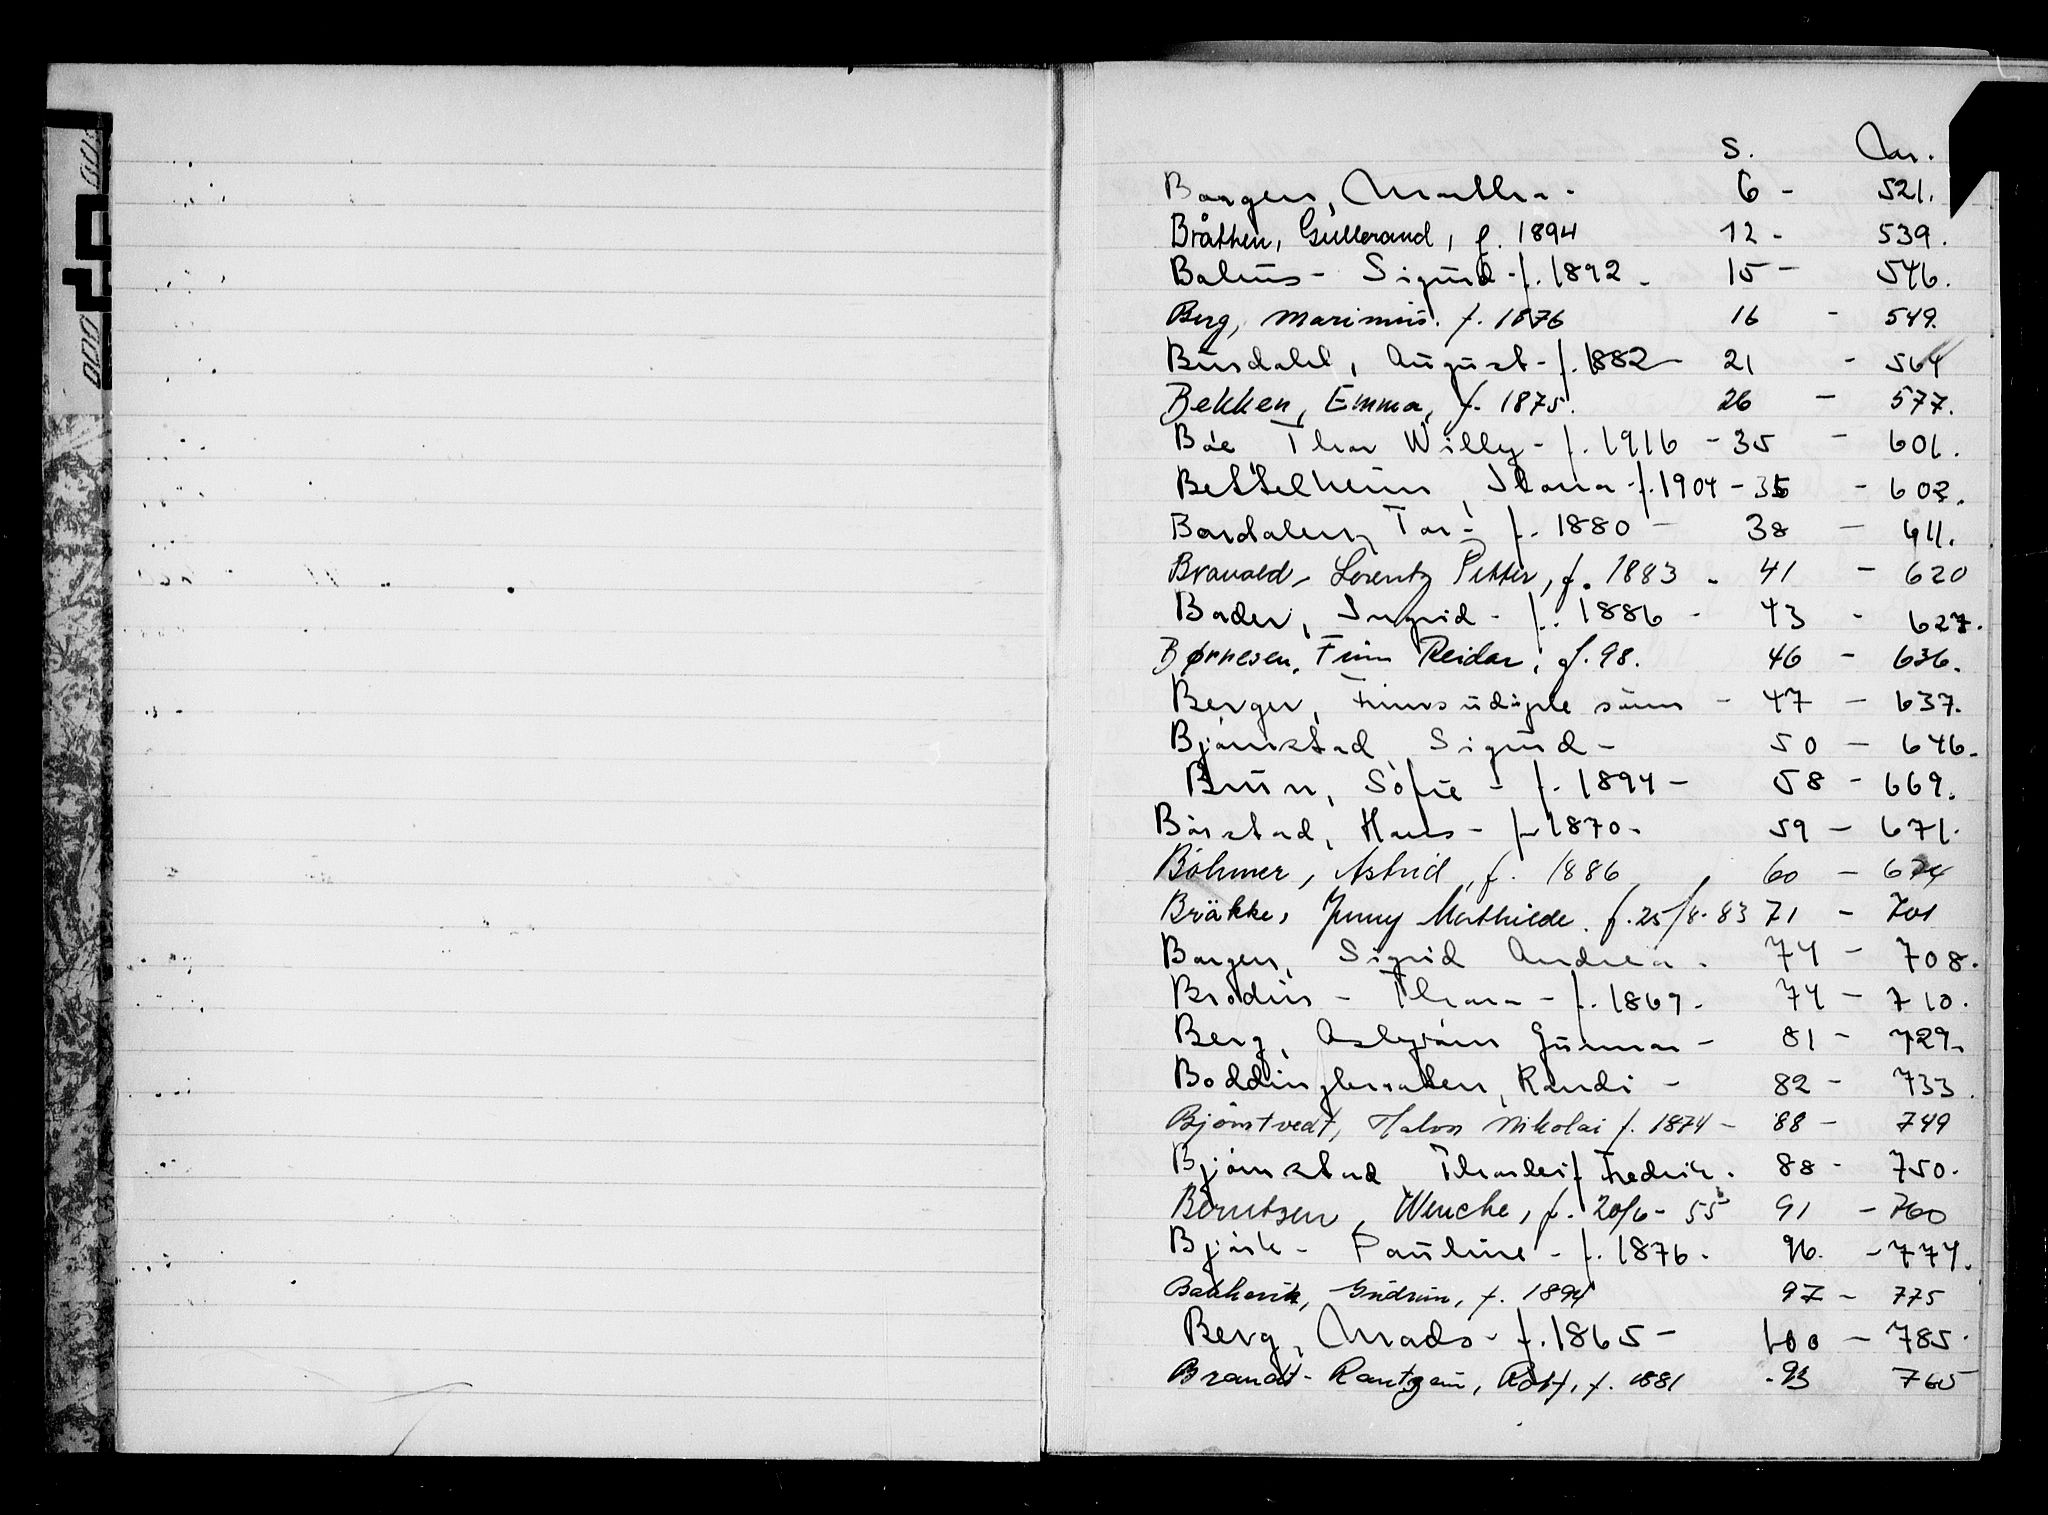 S. Nr.
Borgen, Martha - 6 - 521.
Bråthen, Gullerand, f. 1894 12 - 539.
Balius - Sigurd - f. 1892. 15 - 546.
Berg, Marinius. f. 1876 16 - 549.
Busdahl, August - f. 1882 - 21 - 564
Bekken, Emma, f. 1875. 26 - 577.
Bøe Thor Willy - f. 1916 - 35 - 601.
Bettelheim, Ilona - f. 1904 - 35 - 602.
Tor - f. 1880 - 38 - 611.
Bravold, Lorentz Petter, f. 1883 - 41 - 620
Bader, Ingrid - f. 1886 - 43 - 627.
Børnesen, Finn Reidar, f. 98. 46 - 636.
Berger, sønn - 47 - 637.
Bjørnstad Sigurd - 50 - 646.
Brun, Sofie - f. 1894 - 58 - 669.
Børstad, Hans - f. 1870 - 59 - 671.
Böhmer, Astrid, f. 1886 60 - 674
Bräkke, Jenny Mathilde. f. 25/8-83 71 - 701
Borgen, Sigrid Andrea. 74 - 708.
Brodin - Thora - f. 1869. 74 - 710.
Berg, Asbjørn Gunnar - 81 - 729.
Randi - 82 - 733.
Bjørntvedt, Halvor Nikolai f. 1874 - 88 - 749
Bjørnstad Thorleif Fredrik. 88 - 750.
Berntzen, Wenche, f. 20/6-55 91 - 760
Bjørk - Pauline - f. 1876. 96. - 774.
Gudrun, f. 1894 97 - 775
Berg, Mads - f. 1865 - 100 - 785.
Brandt-Rantzau, Rolf, f. 1881 - 93 765